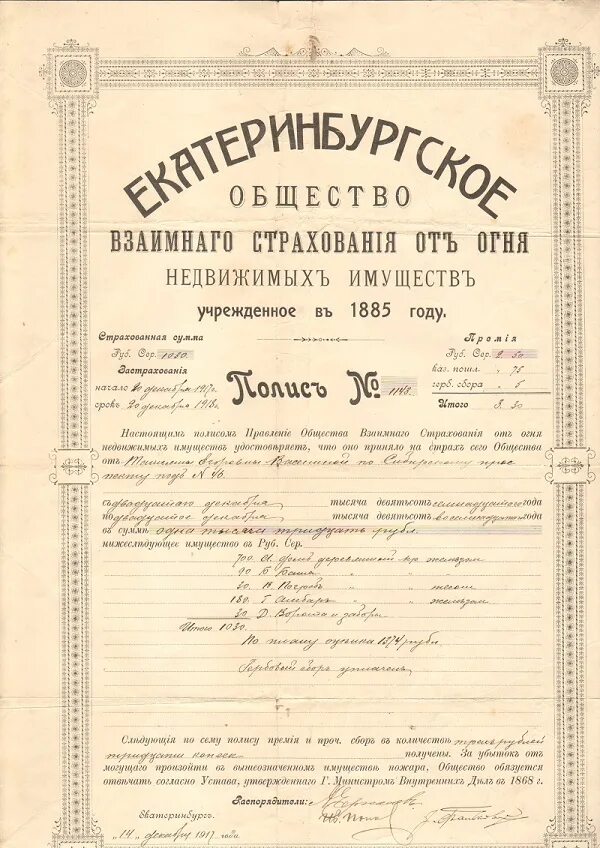 ЕКАТЕРИНБУРГСКОЕ
ОБЩЕСТВО
ВЗАИМНАГО СТРАХОВАНІЯ ОТЪ ОГНЯ
НЕДВИЖИМЫХЪ ИМУЩЕСТВЪ
учрежденное въ 1885 году.
Страхованная сумма
Руб. Сер. 1030
Застрахованія
начало 20 декабря 1917 г.
срокъ 20 декабря 1918 г.
Полисъ № 1148
Премія
Руб. Сер. 2 50
каз. пошл. " 75
герб. сбора " 5
Итого 3. 30
Настоящимъ полисомъ Правленіе Общества Взаимнаго Страхованія отъ огня
недвижимыхъ имуществъ удостовѣряетъ, что оно приняло на страхъ сего Общества
отъ Егоровны по Сибирскому прос
пекту подъ № 46.
съ двадцатаго декабря тысяча девятьсотъ семнадцатаго года
по двадцатое декабря тысяча девятьсотъ восемнадцатаго года
въ сумму одна тысяча тридцать рубл.
нижеслѣдующее имущество въ Руб. Сер.
700 А. домъ деревянный кр. желѣзом
90 Б. Баня " "
30 В. Погребъ " тесом
180 Г. Амбаръ " желѣзом
30 Д. Ворота и заборы
Итого 1030
По плану оцѣнка 1374 рубл
Гербовый сборъ уплаченъ
Слѣдующія по сему полису премія и проч. сборъ въ количествѣ три рублей
тридцати копѣекъ получены. За убытокъ отъ
могущаго произойти въ вышеозначенномъ имуществѣ пожара, Общество обязуется
отвѣчать согласно Устава, утвержденнаго Г. Министромъ Внутреннихъ Дѣлъ въ 1868 г.
Распорядители:
Екатеринбургъ.
"14" декабря 1917 года